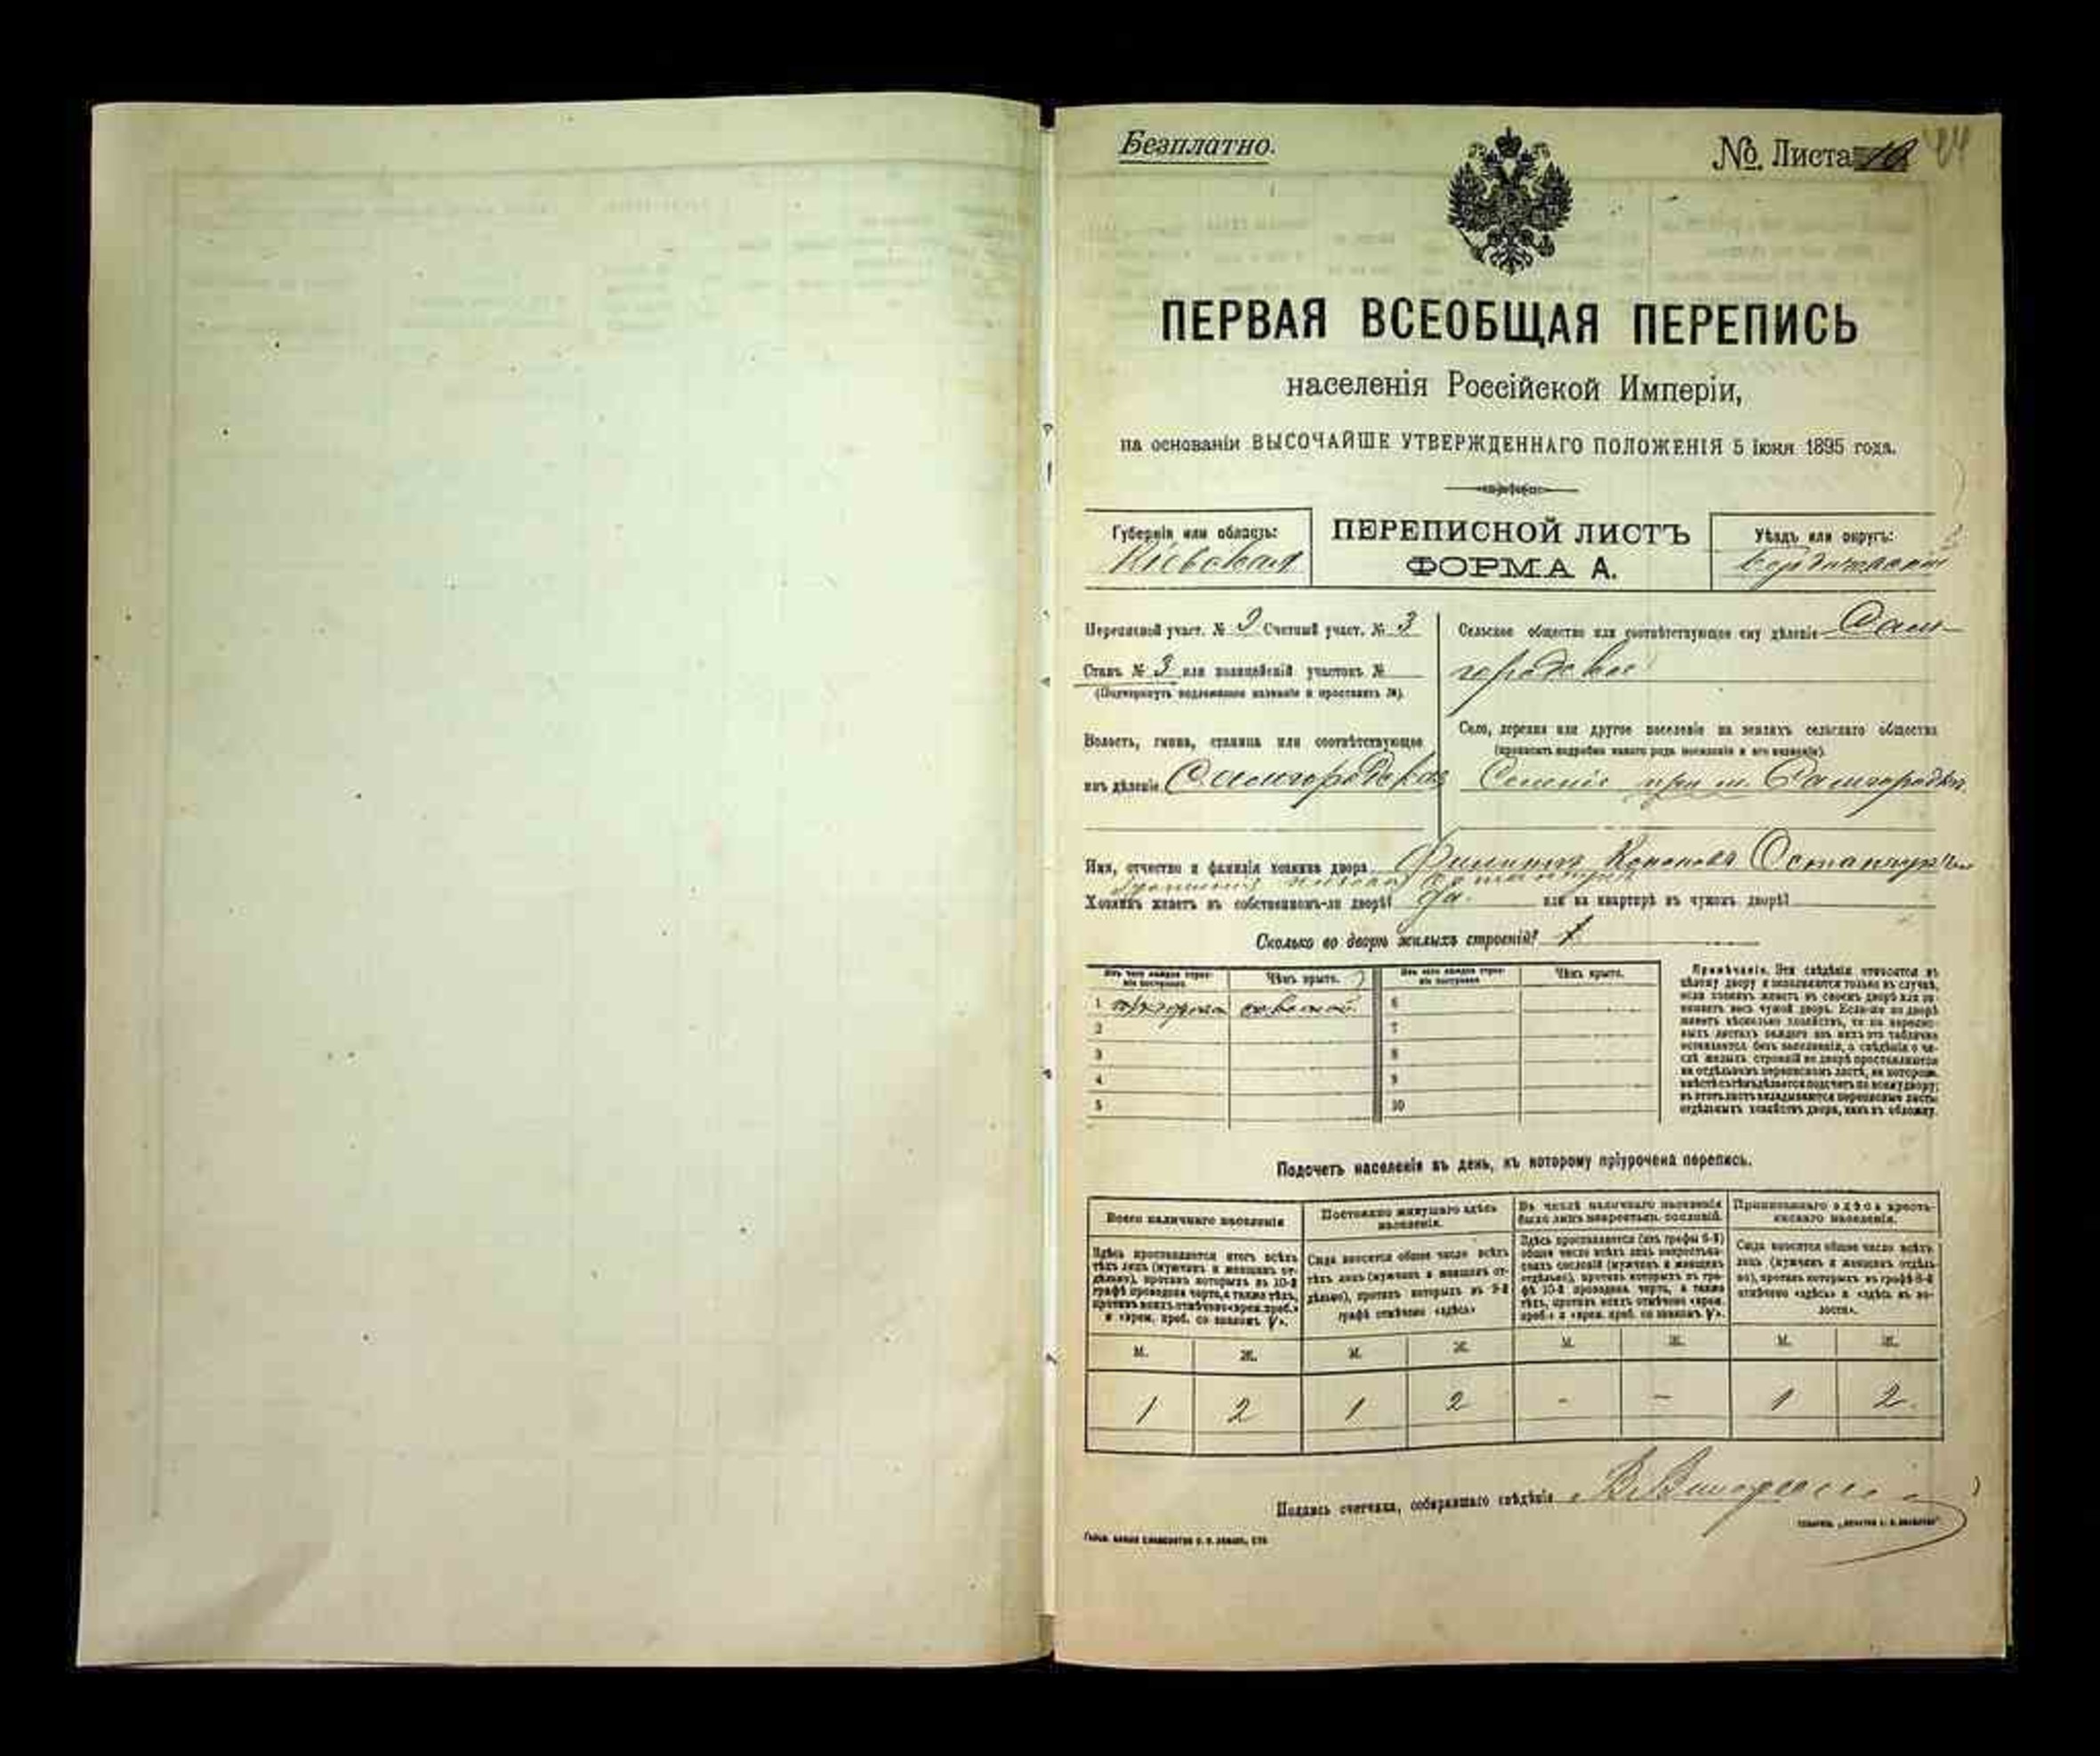 Безплатно.
№ Листа 18
ПЕРВАЯ ВСЕОБЩАЯ ПЕРЕПИСЬ
населенія Россійской Имперіи,
на основаніи ВЫСОЧАЙШЕ УТВЕРЖДЕННАГО ПОЛОЖЕНІЯ 5 Іюня 1895 года.
Губернія или область:
Кіевская
ПЕРЕПИСНОЙ ЛИСТЪ
ФОРМА А.
Уѣздъ или округъ:
Бердичевскій
Переписной участ. № 9 Счетный участ. № 3
Станъ № 3 или полицейскій участокъ №
(Подчеркнуть надлежащее названіе и проставить №).
Волость, гмина, станица или соотвѣтствующее
имъ дѣленіе Самгородская
Сельское общество или соотвѣтствующее ему дѣленіе Сам-
городское
Село, деревня или другое поселеніе на земляхъ сельскаго общества
(прописать подробно какого рода поселеніе и его названіе).
Селеніе при м. Самгородкѣ
Имя, отчество и фамилія хозяина двора Филиппъ Кононовъ
Хозяинъ живетъ въ собственномъ-ли дворѣ? Да. или на квартирѣ въ чужомъ дворѣ?
Сколько во дворѣ жилыхъ строеній? 1
Изъ чего каждое строе-
ніе построено.
Чѣмъ крыто.
Изъ чего каждое строе-
ніе построено.
Чѣмъ крыто.
1 соломой.
2
3
4
5
6
7
8
9
10
Примѣчаніе. Эти свѣдѣнія относятся къ
цѣлому двору и заполняются только въ случаѣ,
если хозяинъ живетъ въ своемъ дворѣ или за-
нимаетъ весь чужой дворъ. Если-же во дворѣ
живетъ нѣсколько хозяйствъ, то на перепис-
ныхъ листахъ каждаго изъ нихъ эта табличка
оставляется безъ заполненія, а свѣдѣнія о чи-
слѣ жилыхъ строеній во дворѣ проставляются
на отдѣльномъ переписномъ листѣ, на которомъ
вмѣстѣ съ тѣмъ дѣлается подсчетъ по всему двору;
въ этотъ листъ вкладываются переписные листы
отдѣльныхъ хозяйствъ двора, какъ въ обложку.
Подсчетъ населенія въ день, къ которому пріурочена перепись.
Всего наличнаго населенія
Здѣсь проставляется итогъ всѣхъ
тѣхъ лицъ (мужчинъ и женщинъ от-
дѣльно), противъ которыхъ въ 10-й
графѣ проведена черта, а также тѣхъ,
противъ коихъ отмѣчено «врем. проб.»
и «врем. проб. со знакомъ V».
Постоянно живущаго здѣсь
населенія.
Сюда вносится общее число всѣхъ
тѣхъ лицъ (мужчинъ и женщинъ от-
дѣльно), противъ которыхъ въ 9-й
графѣ отмѣчено «здѣсь»
Въ числѣ наличнаго населенія
было лицъ некрестьян. сословій.
Здѣсь проставляется (изъ графы 6-й)
общее число всѣхъ лицъ некрестьян-
скихъ сословій (мужчинъ и женщинъ
отдѣльно), противъ которыхъ въ гра-
фѣ 10-й проведена черта, а также
тѣхъ, противъ коихъ отмѣчено «врем.
проб.» и «врем. проб. со знакомъ V».
Приписаннаго здѣсь кресть-
янскаго населенія.
Сюда вносится общее число всѣхъ
лицъ (мужчинъ и женщинъ отдѣль-
но), противъ которыхъ въ графѣ 8-й
отмѣчено «здѣсь» и «здѣсь въ во-
лости».
М. Ж. М. Ж. М. Ж. М. Ж.
1 2 1 2 - - 1 2
Подпись счетчика, собиравшаго свѣдѣнія